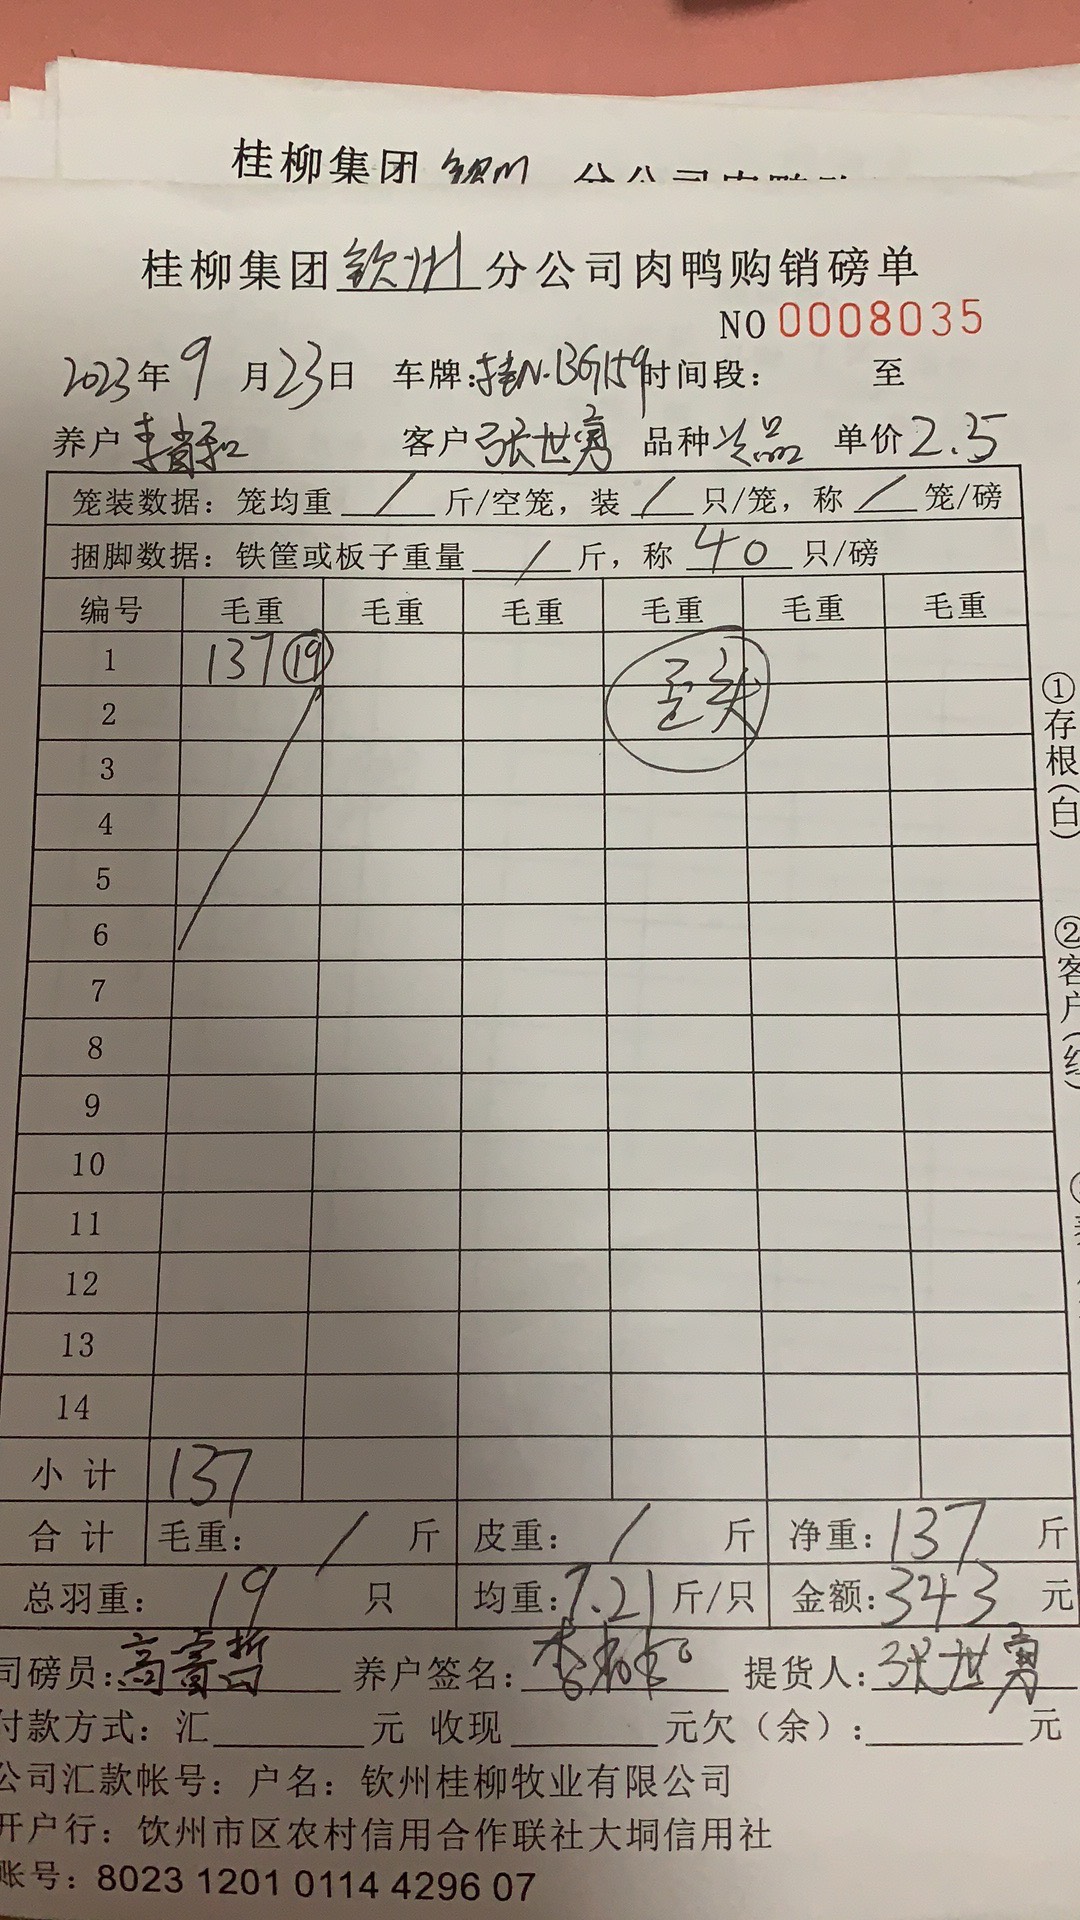 桂柳集团 钦州 分公司肉鸭购
桂柳集团钦州分公司肉鸭购销磅单
NO 0008035
2023年9月23日 车牌:桂N·13G159时间段: 至
养户李尚和 客户张世勇 品种次品 单价2.5
笼装数据:笼均重 / 斤/空笼,装 / 只/笼,称 / 笼/磅
捆脚数据:铁筐或板子重量 / 斤,称 40 只/磅
编号 毛重 毛重 毛重 毛重 毛重 毛重
1 137 ⑲
2
3
4
5
6
7
8
9
10
11
12
13
14
小计 137
合计 毛重: / 斤 皮重: / 斤 净重:137 斤
总羽重: 19 只 均重:7.21斤/只 金额:343 元
司磅员: 养户签名: 提货人:张世勇
付款方式:汇 元 收现 元欠(余): 元
公司汇款帐号:户名:钦州桂柳牧业有限公司
开户行:钦州市区农村信用合作联社大垌信用社
账号:8023 1201 0114 4296 07
①存根(白)
②客户(红)